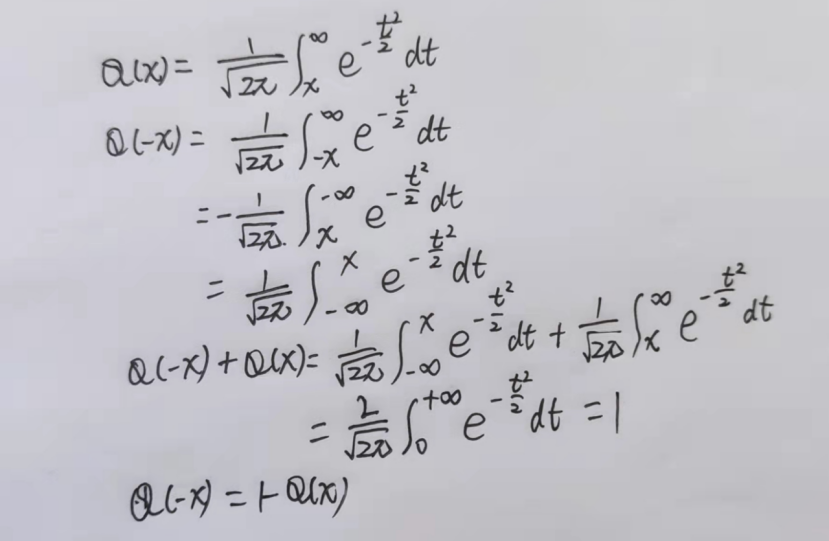 Q(x) = 1/√2π ∫_x^∞ e^(-t²/2) dt
Q(-x) = 1/√2π ∫_-x^∞ e^(-t²/2) dt
= -1/√2π. ∫_x^-∞ e^(-t²/2) dt
= 1/√2π ∫_-∞^x e^(-t²/2) dt
Q(-x) + Q(x) = 1/√2π ∫_-∞^x e^(-t²/2) dt + 1/√2π ∫_x^∞ e^(-t²/2) dt
= 2/√2π ∫_0^+∞ e^(-t²/2) dt = 1
Q(-x) = 1-Q(x)